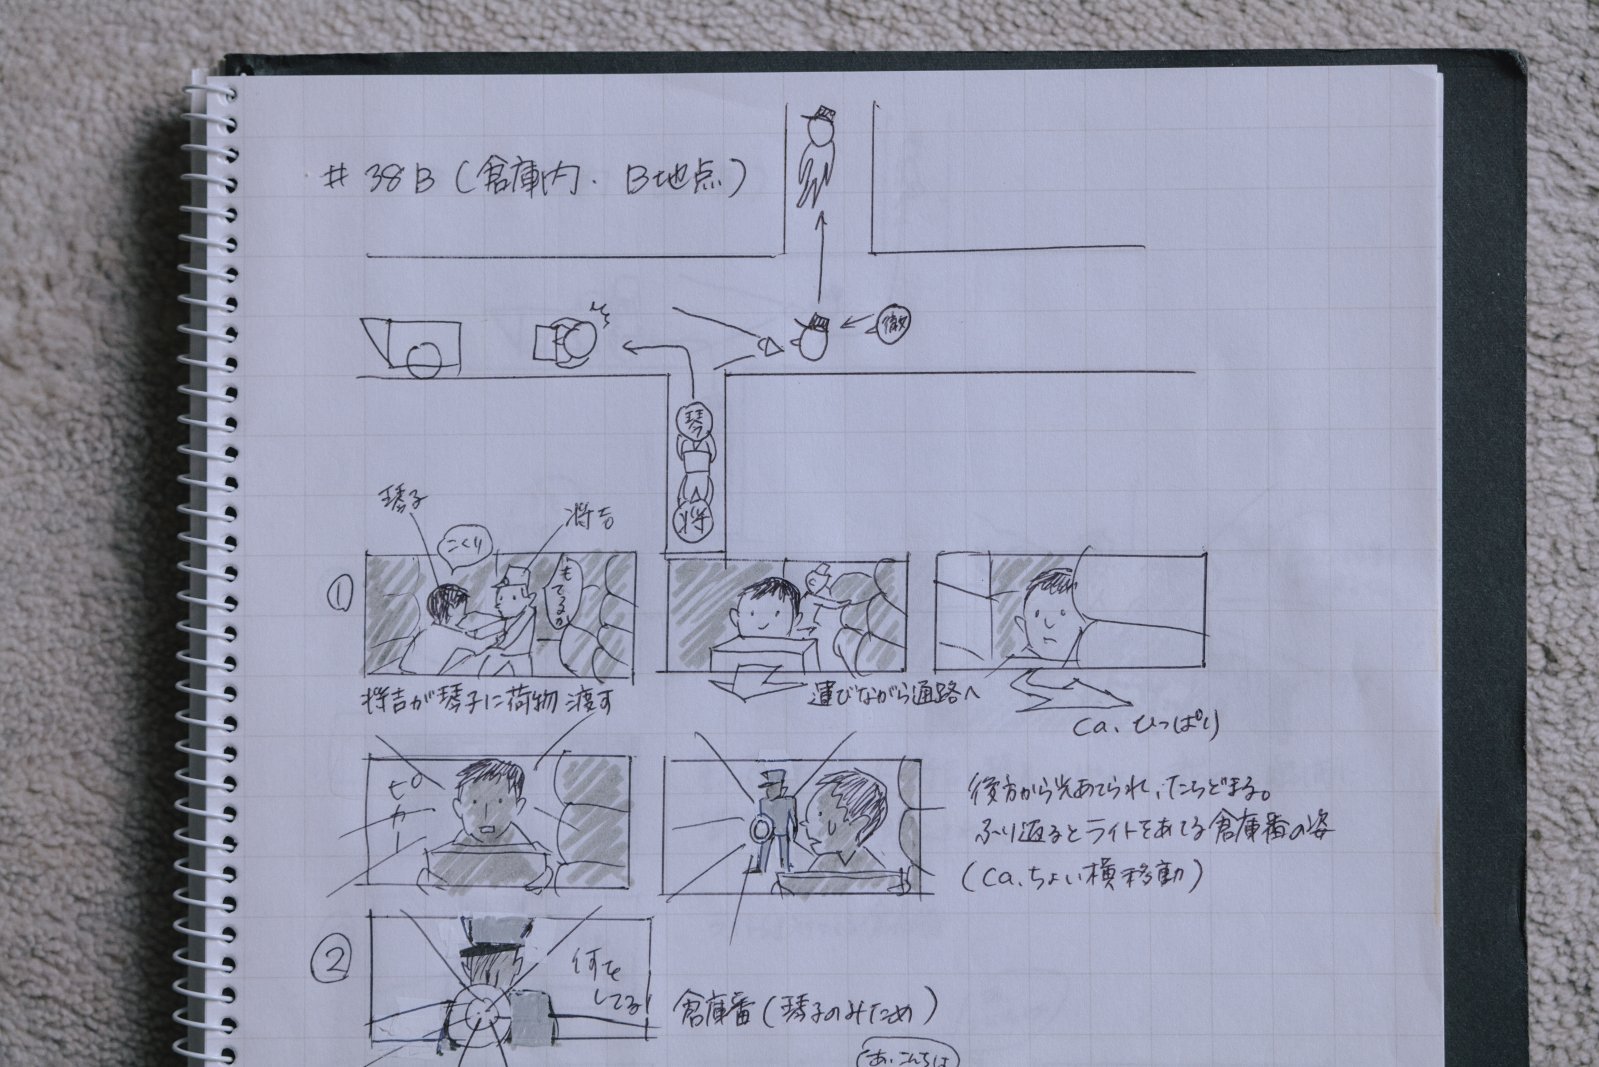 # 38B (倉庫内. B地点)
徹
琴
将
琴子
将吉
こくり
①
もてるか
将吉が琴子に荷物渡す
運びながら通路へ
ca. ひっぱり
ピカー
後方から光あてられ、たちどまる。
ふり返るとライトをあてる倉庫番の姿
(ca. ちょい横移動)
②
何をしてる!
倉庫番(琴子のみため)
あ、こんちは